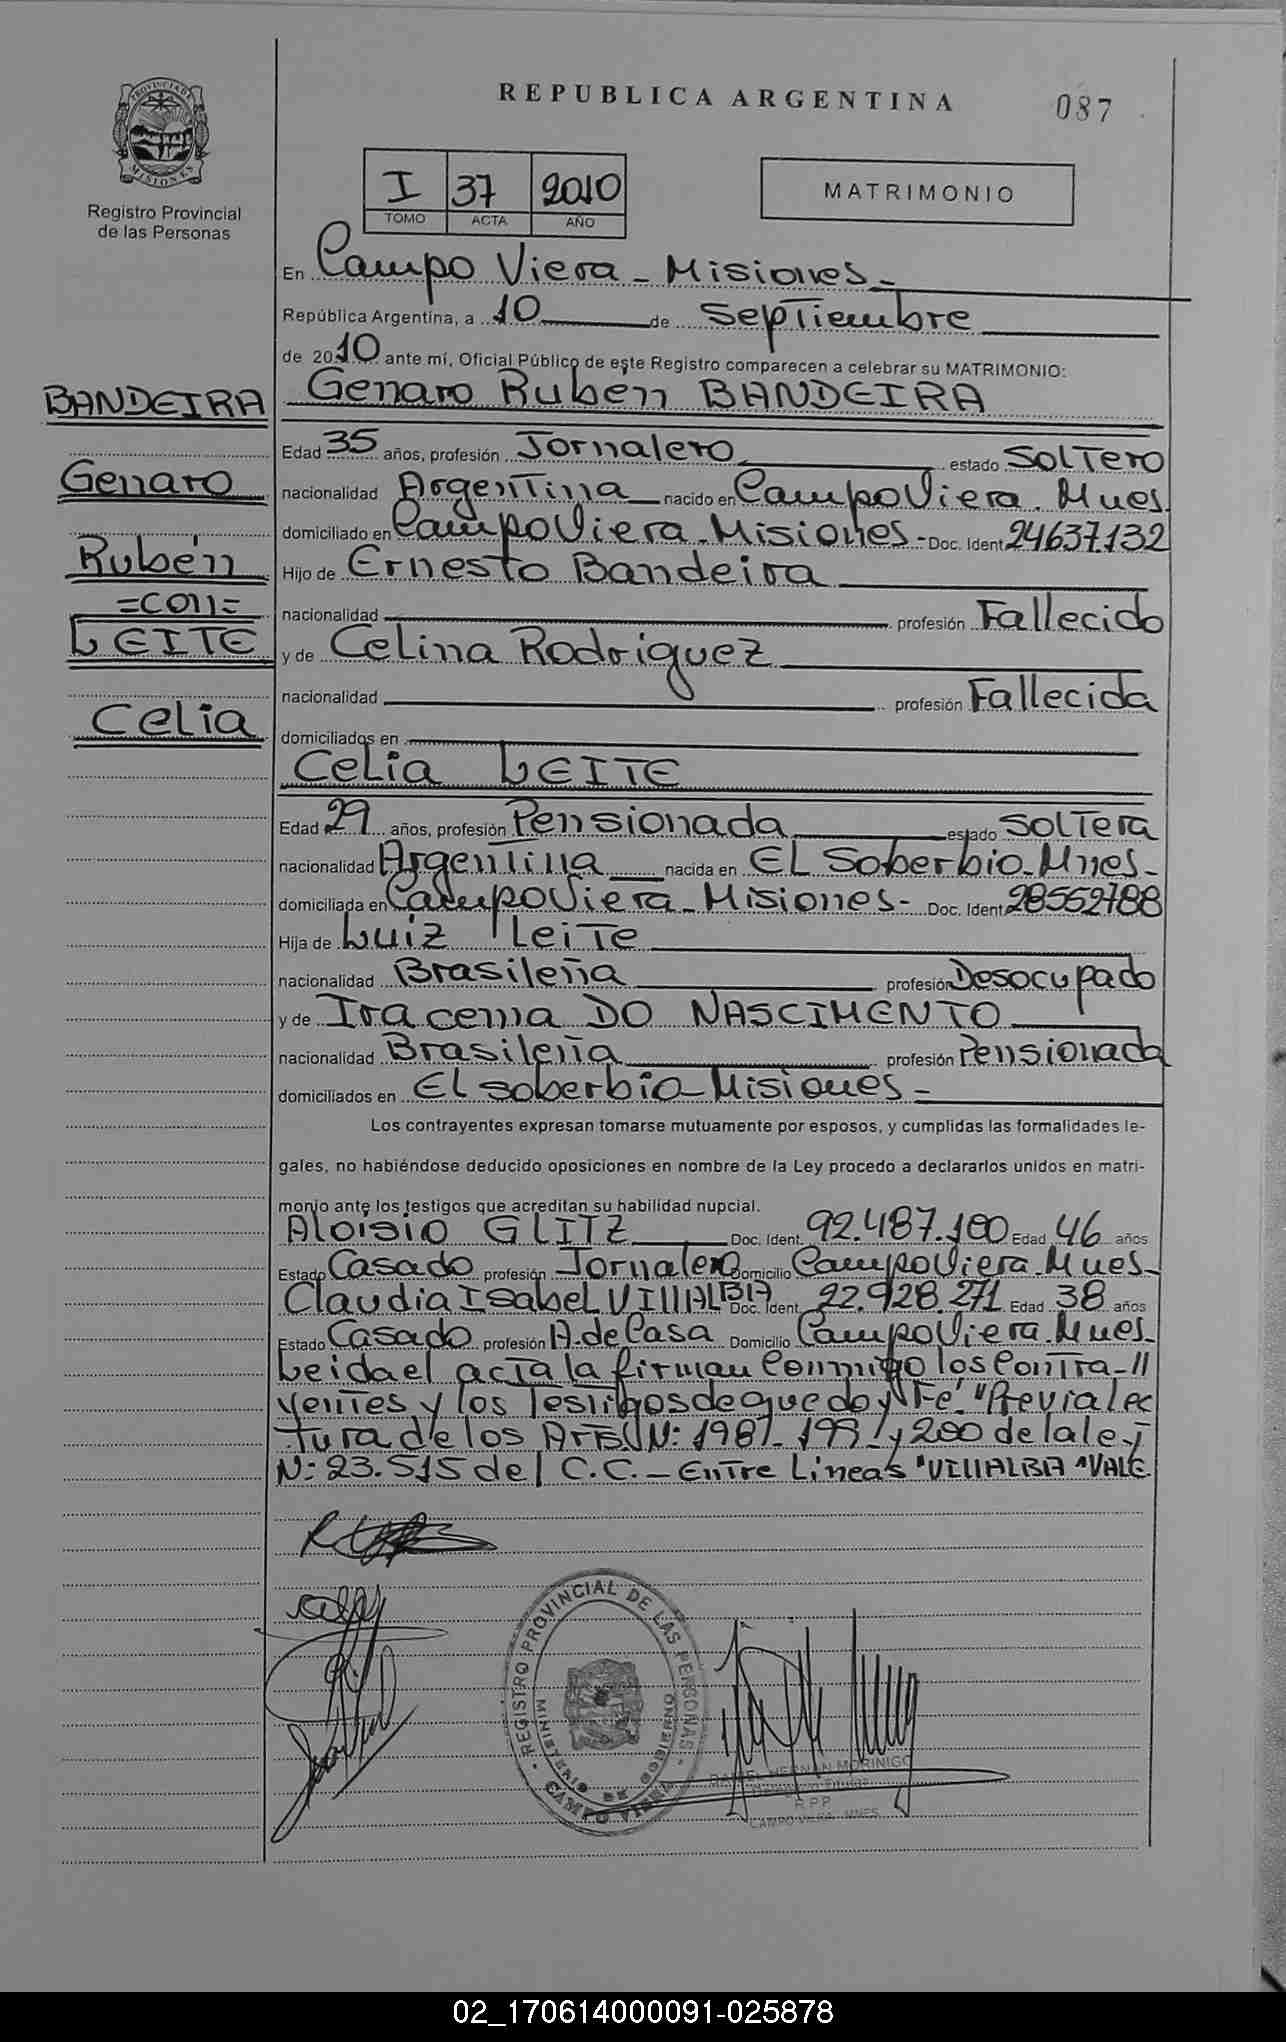 PROVINCIA DE MISIONES
Registro Provincial
de las Personas
REPUBLICA ARGENTINA
087
I 37 2010
TOMO ACTA AÑO
MATRIMONIO
En Campo Viera - Misiones -
República Argentina, a 10 de Septiembre
de 2010 ante mí, Oficial Público de este Registro comparecen a celebrar su MATRIMONIO:
BANDEIRA
Genaro
Rubén
=con=
LEITE
Celia
Genaro Rubén BANDEIRA
Edad 35 años, profesión Jornalero estado Soltero
nacionalidad Argentina nacido en Campo Viera. Mnes.
domiciliado en Campo Viera - Misiones - Doc. Ident. 24637.132
Hijo de Ernesto Bandeira
nacionalidad profesión Fallecido
y de Celina Rodriguez
nacionalidad profesión Fallecida
domiciliados en
Celia LEITE
Edad 29 años, profesión Pensionada estado Soltera
nacionalidad Argentina nacida en EL Soberbio - Mnes -
domiciliada en Campo Viera - Misiones - Doc. Ident. 28552788
Hija de Luiz Leite
nacionalidad Brasileña profesión Desocupado
y de Iracema DO NASCIMENTO
nacionalidad Brasileña profesión Pensionada
domiciliados en El Soberbio - Misiones -
Los contrayentes expresan tomarse mutuamente por esposos, y cumplidas las formalidades le-
gales, no habiéndose deducido oposiciones en nombre de la Ley procedo a declararlos unidos en matri-
monio ante los testigos que acreditan su habilidad nupcial.
Aloisio GLITZ Doc. Ident. 92.487.100 Edad 46 años
Estado Casado profesión Jornalero Domicilio Campo Viera. Mnes -
Claudia Isabel VILLALBA Doc. Ident. 22.928.271 Edad 38 años
Estado Casado profesión A. de Casa Domicilio Campo Viera. Mnes -
Leida el acta la firman Conmigo los Contra-//
yentes y los Testigos de que doy Fe. "Previa lec
tura de los Arts. N: 198/ 199/ y 200 de la ley
N: 23.515 del C.C. - Entre Lineas "VILLALBA" VALE
REGISTRO PROVINCIAL DE LAS PERSONAS
MINISTERIO DE GOBIERNO
CAMPO VIERA
DANIEL HERNAN MORINIGO
R.P.P.
CAMPO VIERA - MNES
02_170614000091-025878